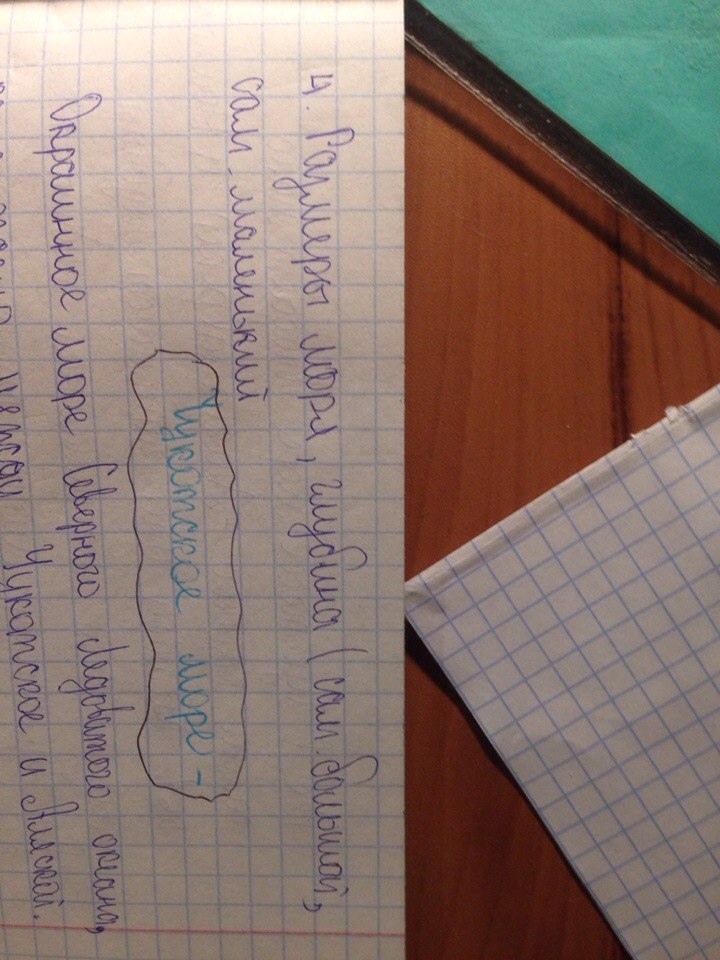 4. Размеры моря, глубина (сам. большой,
сам. маленький
Чукотское море -
Окраинное море Северного Ледовитого океана,
Чукоткое и Аляской.